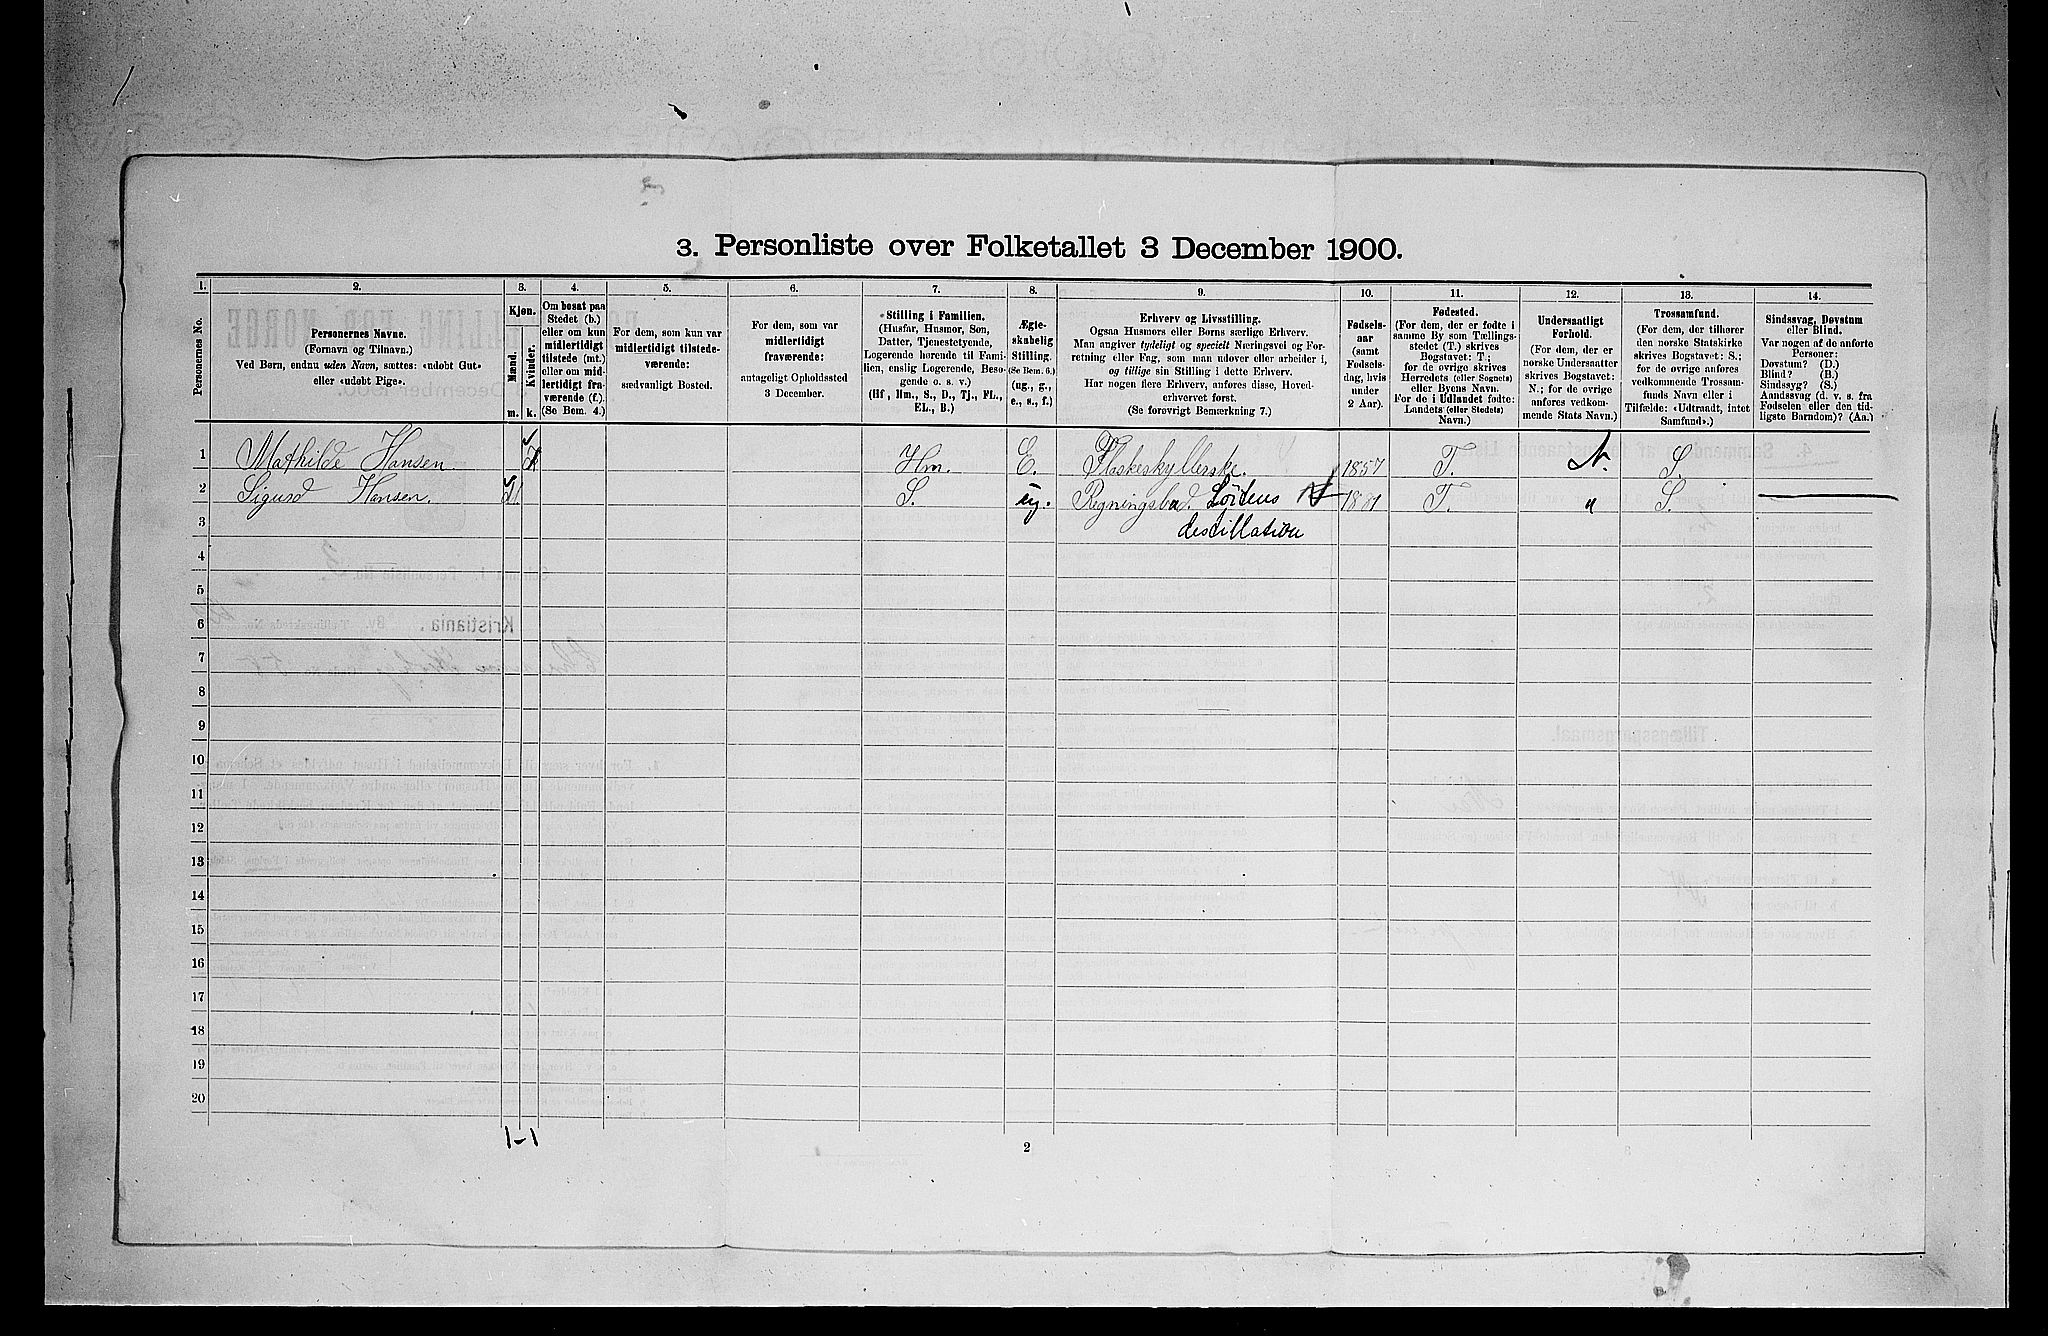 3. Personliste over Folketallet 3 December 1900.
1. 2. 3. 4. 5. 6. 7. 8. 9. 10. 11. 12. 13. 14.
Personernes No.
Personernes Navne.
(Fornavn og Tilnavn.)
Ved Børn, endnu uden Navn, sættes: «udøbt Gut»
eller «udøbt Pige».
Kjøn.
Mænd.
Kvinder.
m. k.
Om bosat paa
Stedet (b.)
eller om kun
midlertidigt
tilstede (mt.)
eller om mid-
lertidigt fra-
værende (f.).
(Se Bem. 4.)
For dem, som kun var
midlertidigt tilstede-
værende:
sædvanligt Bosted.
For dem, som var
midlertidigt
fraværende:
antageligt Opholdssted
3 December.
Stilling i Familien.
(Husfar, Husmor, Søn,
Datter, Tjenestetyende,
Logerende hørende til Fami-
lien, enslig Logerende, Besø-
gende o. s. v.)
(Hf, Hm., S., D., Tj., FL.,
EL., B.)
Ægte-
skabelig
Stilling.
(Se Bem. 6.)
(ug., g.,
e., s., f.)
Erhverv og Livsstilling.
Ogsaa Husmors eller Børns særlige Erhverv.
Man angiver tydeligt og specielt Næringsvei og For-
retning eller Fag, som man udøver eller arbeider i,
og tillige sin Stilling i dette Erhverv.
Har nogen flere Erhverv, anføres disse, Hoved-
erhvervet først.
(Se forøvrigt Bemærkning 7.)
Fødsels-
aar
(samt
Fødsels-
dag, hvis
under
2 Aar).
Fødested.
(For dem, der er fødte i
samme By som Tællings-
stedet (T.) skrives
Bogstavet: T.;
for de øvrige skrives
Herredets (eller Sognets)
eller Byens Navn.
For de i Udlandet fødte:
Landets (eller Stedets)
Navn.)
Undersaatligt
Forhold.
(For dem, der er
norske Undersaatter
skrives Bogstavet:
N.; for de øvrige
anføres vedkom-
mende Stats Navn.)
Trossamfund.
(For dem, der tilhører
den norske Statskirke
skrives Bogstavet: S.;
for de øvrige anføres
vedkommende Trossam-
funds Navn eller i
Tilfælde: «Udtraadt, intet
Samfund».)
Sindssvag, Døvstum
eller Blind.
Var nogen af de anførte
Personer:
Døvstum? (D.)
Blind? (B.)
Sindssyg? (S.)
Aandssvag (d. v. s. fra
Fødselen eller den tid-
ligste Barndom)? (Aa.)
1 Mathilde Hansen K Hm. E. Flaskeskyllerske. 1857 T. N. S.
2 Sigurd Hansen. Hm. S. ug. Regningsbud. Löitens 1881 T. " S.
destillation
3
4
5
6
7
8
9
10
11
12
13
14
15
16
17
18
19
20
1-1
2